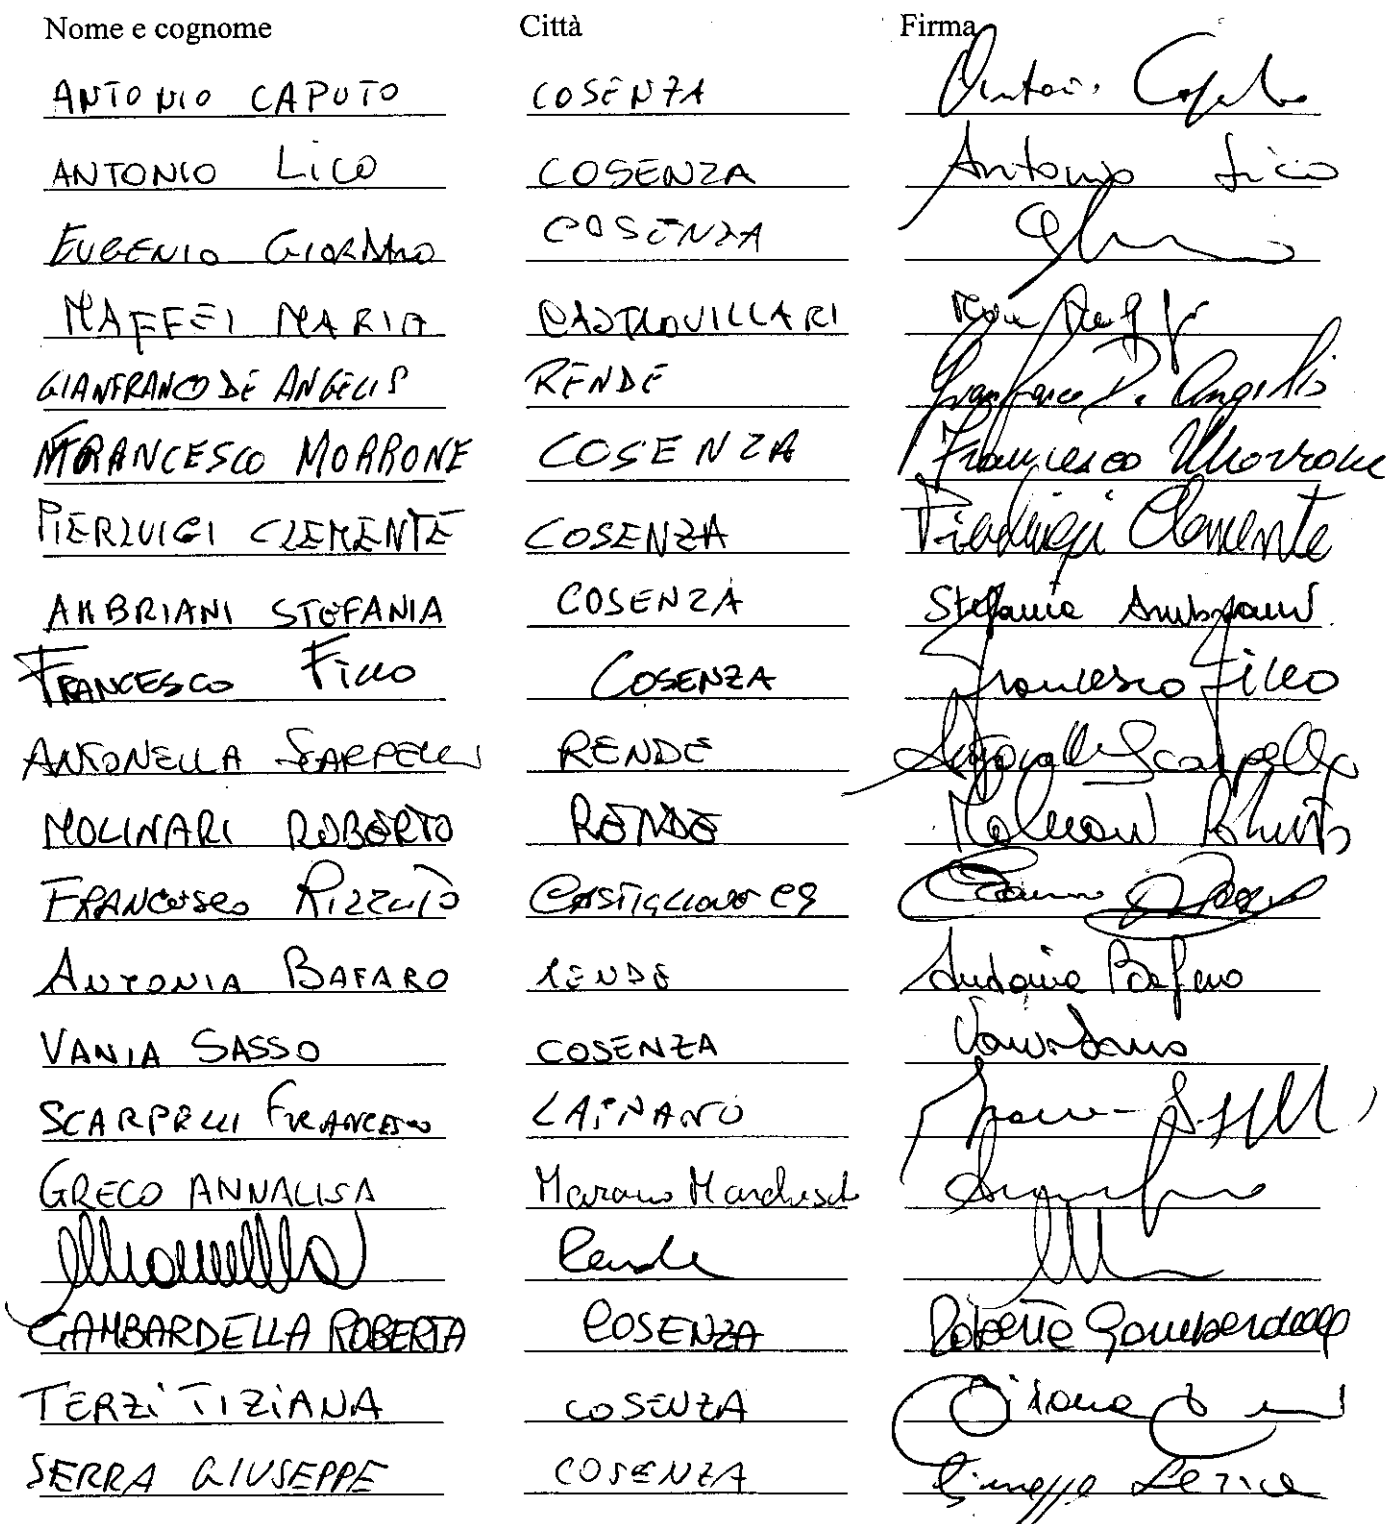 Nome e cognome Città Firma
ANTONIO CAPUTO COSENZA Antonio Caputo
ANTONIO LICO COSENZA Antonio Lico
EUGENIO GIORDANO COSENZA
MAFFEI MARIA CASTROVILLARI
GIANFRANCO DE ANGELIS RENDE Gianfranco De Angelis
FRANCESCO MORRONE COSENZA Francesco Morrone
PIERLUIGI CLEMENTE COSENZA Pierluigi Clemente
AMBRIANI STEFANIA COSENZA Stefania Ambriani
FRANCESCO FILLO COSENZA Francesco Fillo
ANTONELLA SCARPELLI RENDE Antonella Scarpelli
MOLINARI ROBERTO RENDE Molinari Roberto
FRANCESCO RIZZUTO CASTIGLIONE CS
ANTONIA BAFARO RENDE Antonia Bafaro
VANIA SASSO COSENZA Vania Sasso
SCARPELLI FRANCESCO
GRECO ANNALISA Marano Marchesato
Rende
GAMBARDELLA ROBERTA COSENZA Roberta Gambardella
TERZI TIZIANA COSENZA
SERRA GIUSEPPE COSENZA Giuseppe Serra